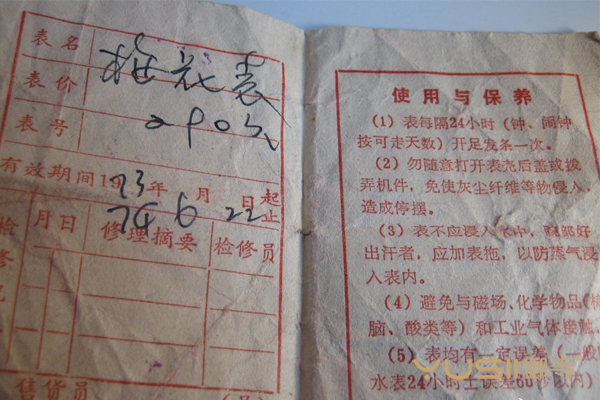 表名 梅花表
表价 290元
表号
有效期间1973年 月 日起
74 6 22止
检修 月日 修理摘要 检修员
售货员
使用与保养
(1) 表每隔24小时（钟、闹钟
按可走天数）开足发条一次。
(2) 勿随意打开表壳后盖或拨
弄机件，免使灰尘纤维等物侵入，
造成停摆。
(3) 表不应浸入水中，腕部好
出汗者，应加表拖，以防蒸气浸
入表内。
(4) 避免与磁场、化学物品(
脑、酸类等）和工业气体接触。
(5) 表均有一定误差（一般
水表24小时土误差60秒以内）
YUSI